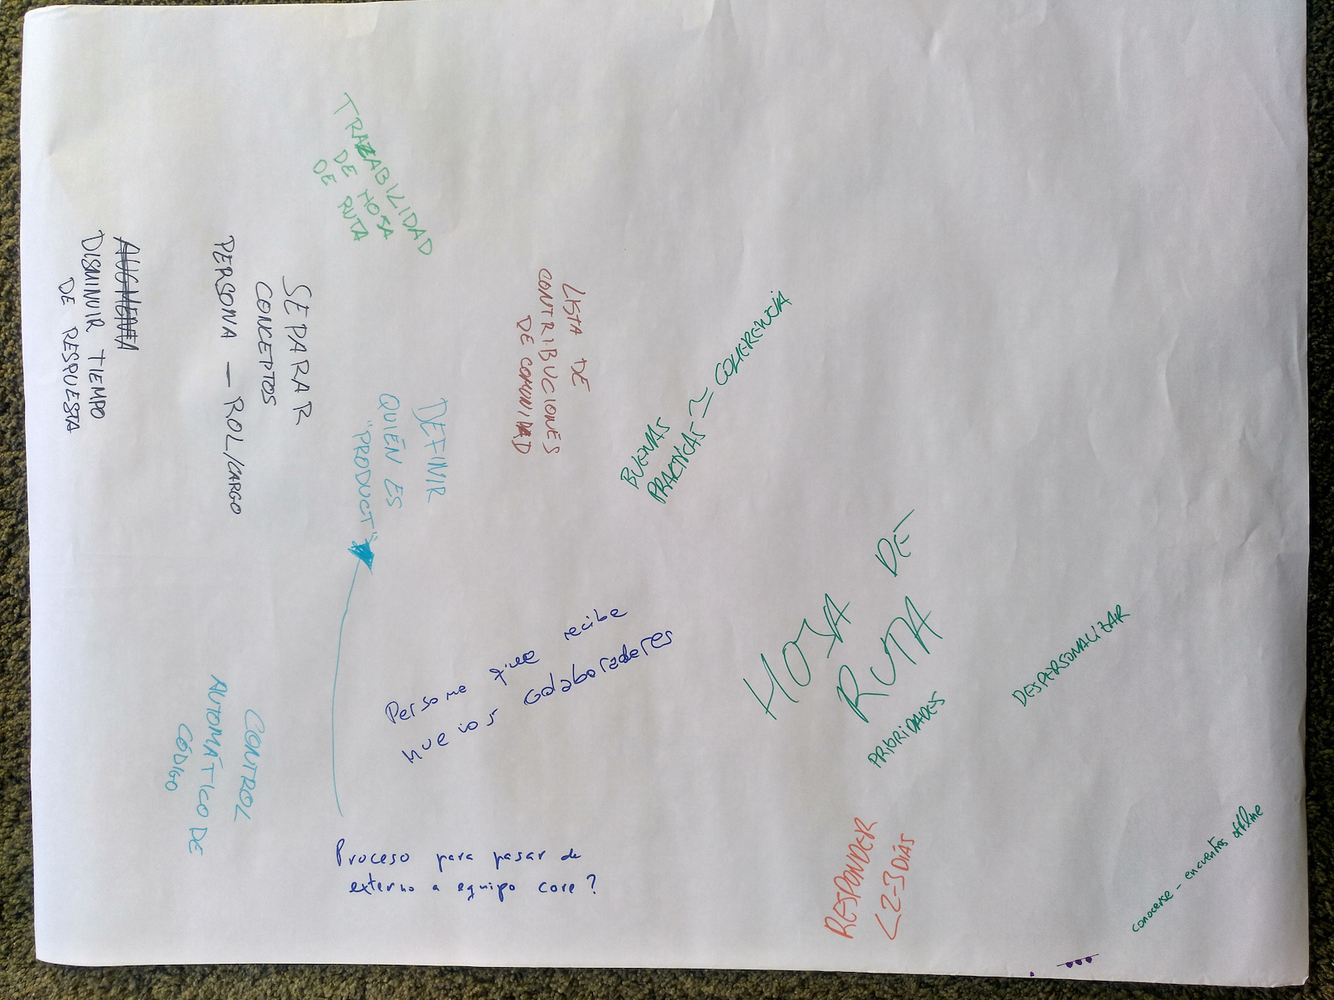 TRAZABILIDAD
DE HOJA
DE RUTA
AUGMENTA
DISMINUIR TIEMPO
DE RESPUESTA
SEPARAR
CONCEPTOS
PERSONA – ROL/CARGO
LISTA DE
CONTRIBUCIONES
DE COMUNIDAD
BUENAS
PRÁCTICAS ~ COHERENCIA
DEFINIR
QUIÉN ES
"PRODUCT"
HOJA DE
RUTA
PRIORIDADES
DESPERSONALIZAR
Persona que recibe
nuevos colaboradores
CONTROL
AUTOMÁTICO DE
CÓDIGO
Proceso para pasar de
externo a equipo core?
RESPONDER
<2-3 DÍAS
conocerse – encuentros offline